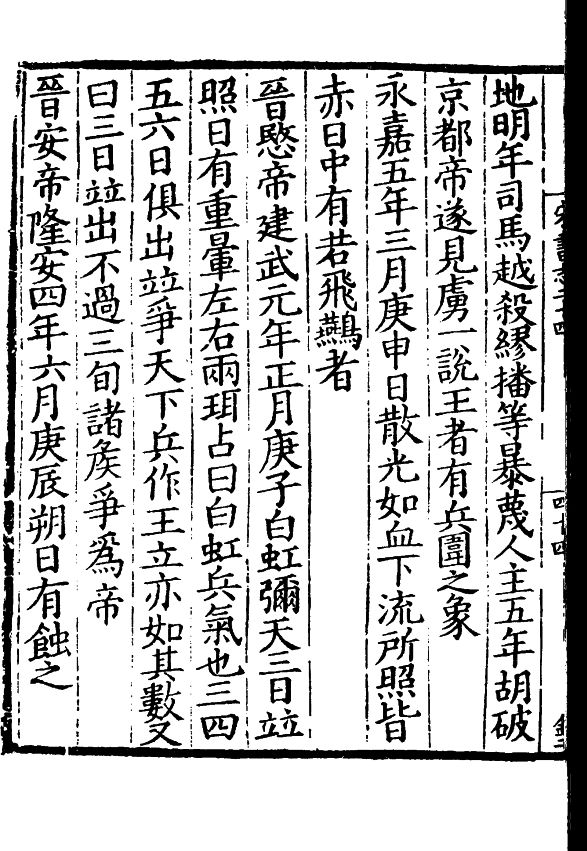 地明年司馬越殺繆播等暴蔑人主五年胡破
京都帝遂見虜一說王者有兵圍之象
永嘉五年三月庚申日散光如血下流所照皆
赤日中有若飛鷰者
晉愍帝建武元年正月庚子白虹彌天三日竝
照日有重暈左右兩珥占曰白虹兵氣也三四
五六日俱出竝爭天下兵作王立亦如其數又
曰三日竝出不過三旬諸矦爭爲帝
晉安帝隆安四年六月庚辰朔日有蝕之